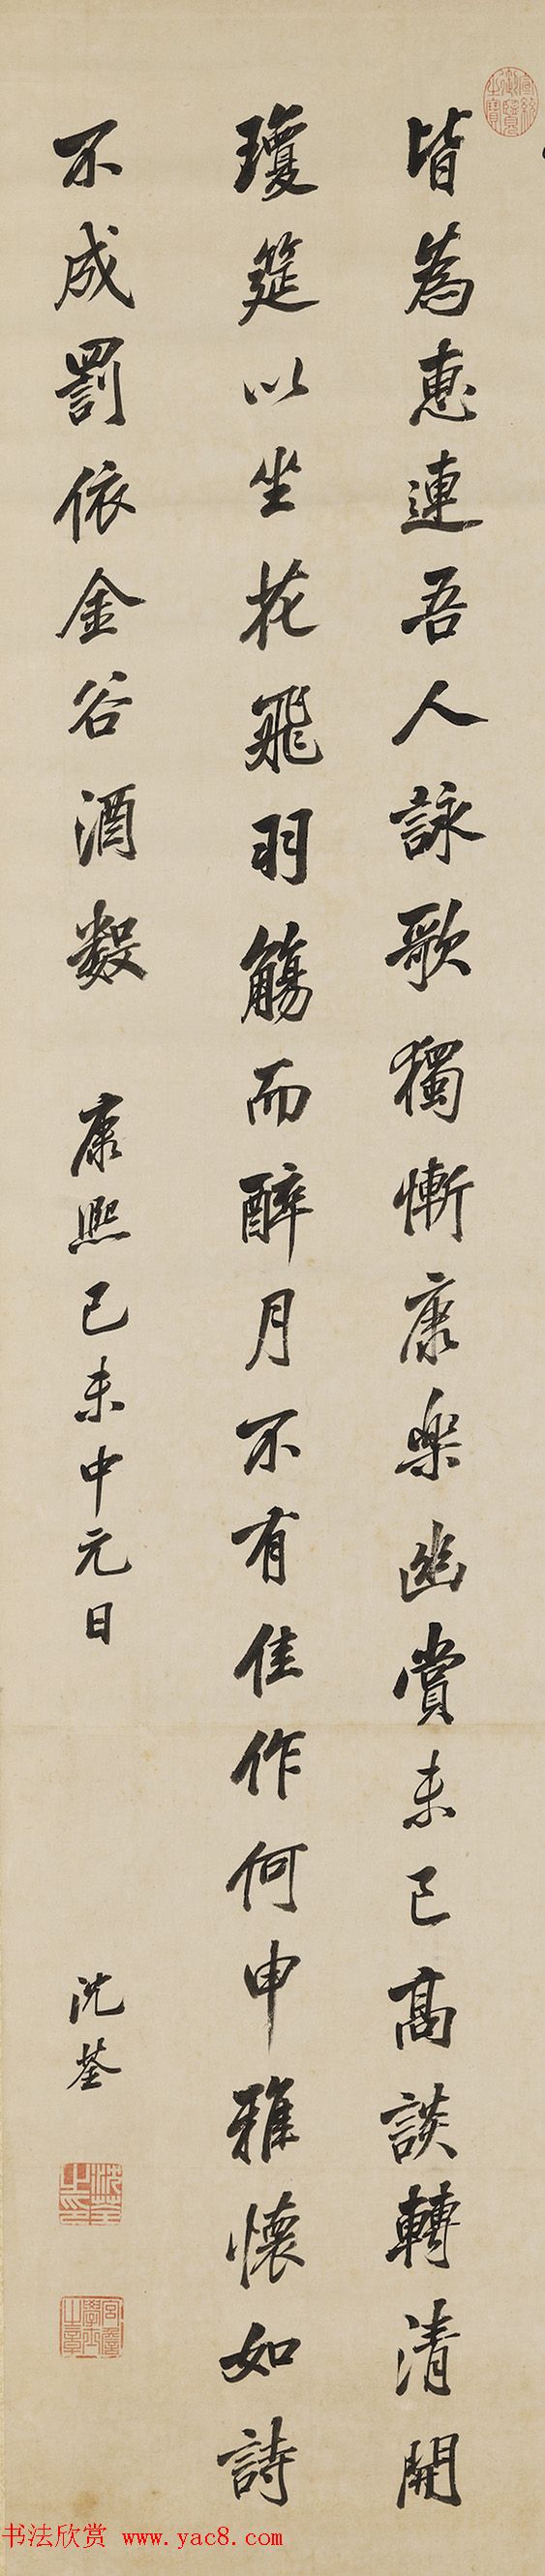 皆為惠連吾人詠歌獨慚康樂幽賞未已高談轉清開
瓊筵以坐花飛羽觴而醉月不有佳作何申雅懷如詩
不成罰依金谷酒數 康熙己未中元日
沈荃
宣統御覽之寶
沈荃之印
宮詹學士之章
书法欣赏 www.yac8.com